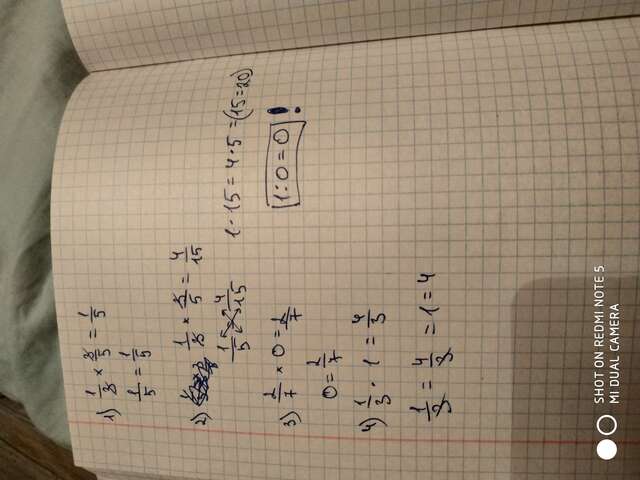 1) 1/3 × 3/5 = 1/5
1/5 = 1/5
2) 1/3 × 3/5 = 4/15
1/5 = 4/15
1·15 = 4·5 = (15 = 20)
3) 2/7 × 0 = 2/7
1:0 = 0 !
0 = 2/7
4) 1/3 · 1 = 4/3
1/3 = 4/3 = 1 = 4
SHOT ON REDMI NOTE 5
MI DUAL CAMERA